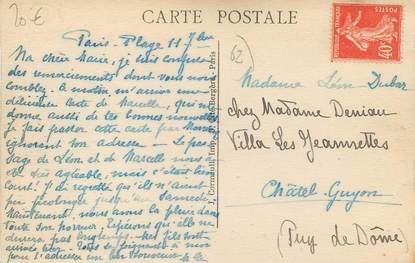 20 €
CARTE POSTALE
62
POSTES
40c
Paris-Plage 11 7bre
Ma chère Marie, je suis confuse
des remerciements dont vous nous
comblez. Ce matin, m'arrive une
délicieuse carte de Marcelle, qui me
donne aussi de les bonnes nouvelles
Je fais passer cette carte par
ignorant son adresse - Le pas-
sage de Léon et de Marcelle nous a
été très agréable, mais c'était bien
court! J'ai regretté qu'ils n'aient
pu prolonger jusqu'au Samedi.
Maintenant, nous avons la pluie dans
toute son horreur. Espérons qu'elle ne
durera pas longtemps. Mes fils sont
Madame Léon Dubar
chez Madame Deniau
Villa Les Jeannettes
Châtel-Guyon
(Puy de Dôme)